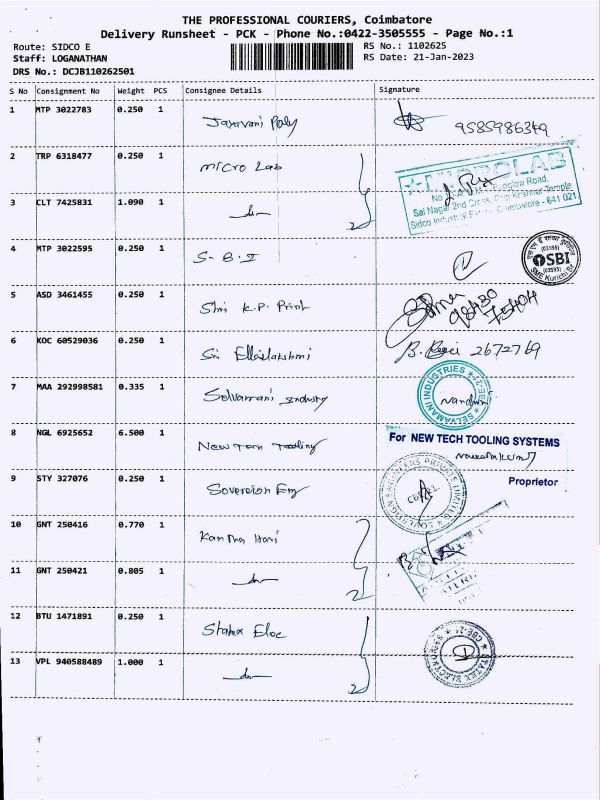 THE PROFESSIONAL COURIERS, Coimbatore
Delivery Runsheet - PCK - Phone No.:0422-3505555 - Page No.:1
Route: SIDCO E
RS No.: 1102625
Staff: LOGANATHAN
RS Date: 21-Jan-2023
DRS No.: DCJB110262501
S No Consignment No Weight PCS Consignee Details Signature
1 MTP 3022783 0.250 1
9585986349
2 TRP 6318477 0.250 1 micro Lab
MICROLAB
3 CLT 7425831 1.090 1
Sai Nagar, 2nd Cross,
Sidco Industrial Coimbatore - 641 021
4 MTP 3022595 0.250 1 S-B-I
SBI
5 ASD 3461455 0.250 1 Shri K.P. Print
6 KOC 60529036 0.250 1 Sri B. 2672769
7 MAA 292998581 0.335 1 Selvamani Industry
SELVAMANI INDUSTRIES
8 NGL 6925652 6.500 1 New Tech Tooling
For NEW TECH TOOLING SYSTEMS
Proprietor
9 STY 327076 0.250 1 Sovereign Eng
10 GNT 250416 0.770 1
11 GNT 250421 0.805 1
12 BTU 1471891 0.250 1 Statex Elec
13 VPL 940588489 1.000 1